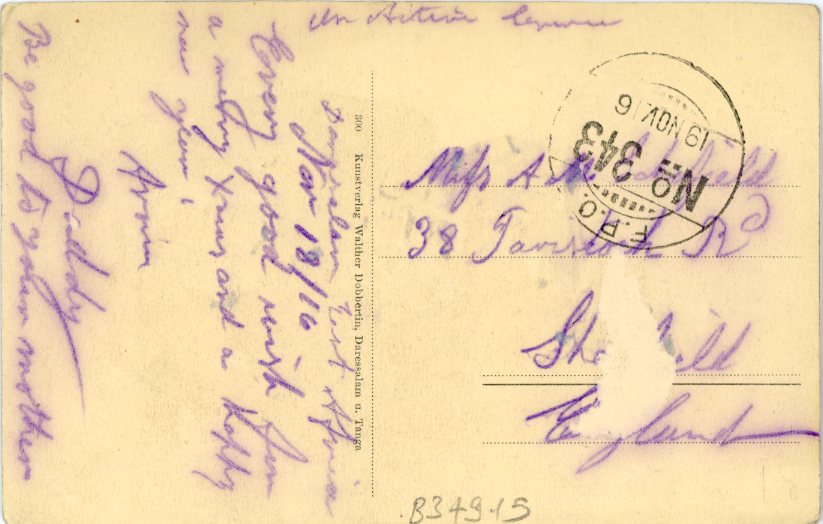 On Active Service
Daresalam East Africa
Nov 18/16
Every good wish for
a merry Xmas and a Happy
new year.
from
Daddy
Be good to your mother
300 Kunstverlag Walther Dobbertin, Daressalam u. Tanga
F.P.O.
No 343
19 NOV 16
Miss A
38 Tavistock Rd
She ield
England
B349.15